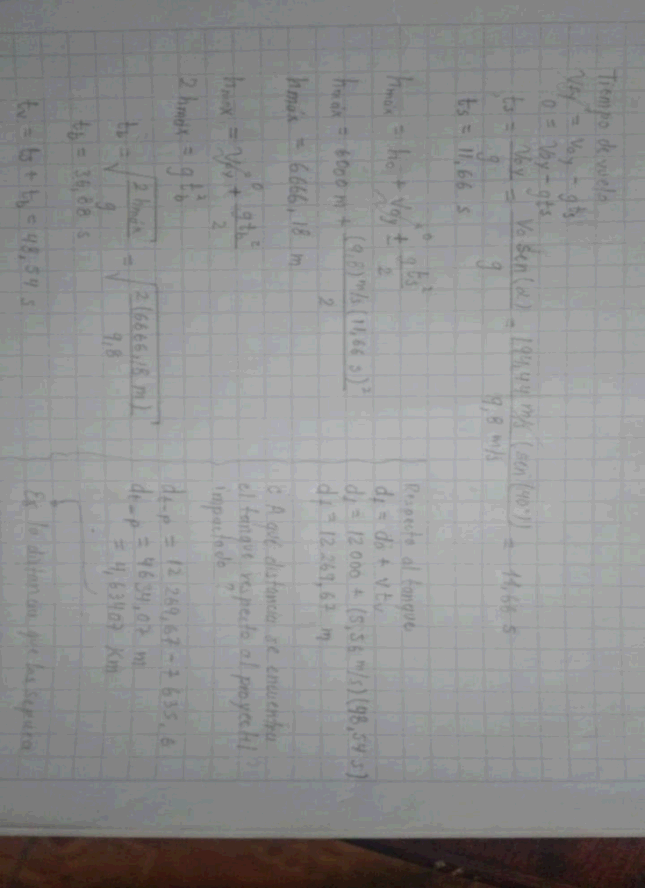 Tiempo de vuelo
Vfy = Voy - gts
0 = Voy - gts
ts = Voy/g = Vo sen(α)/g = 194,44 m/s (sen(40°))/9,8 m/s = 11,66 s
ts = 11,66 s
hmáx = ho + Voy + gts²/2
hmáx = 6000 m + (9,8) m/s (11,66 s)²/2
hmáx = 6666,18 m
hmáx = Voy + gtb²/2
2 hmáx = gtb²
tb = √(2 hmáx/g) = √(2(6666,18 m)/9,8)
tb = 36,88 s
tv = ts + tb = 48,54 s
Respecto al tanque
di = do + v tv
di = 12000 + (5,56 m/s)(48,54 s)
di = 12269,67 m
¿ A qué distancia se encuentra
el tanque respecto al proyectil
impactado ?
dt-p = 12269,67 - 7635,6
dt-p = 4634,07 m
= 4,63407 Km
Es la distancia que los separa